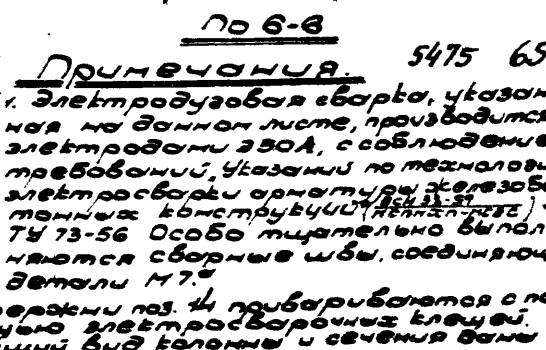 По 6-6
5475 65
Примечания.
1. Электродуговая сварка, указан
ная на данном листе, производится
электродами Э50А, с соблюдение
требований, "Указаний по технологи
электросварки арматуры железобе
тонных конструкций"
ТУ 73-56 Особо тщательно выпол
няются сварные швы, соединяющ
детали М7."
ержни поз. 14 привариваются с по
щью электросварочных клещей.
щий вид колонны и сечения даны